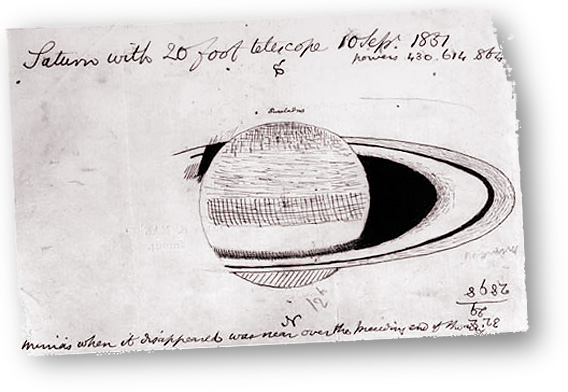 Saturn with 20 foot telescope 10 Sepr. 1851
powers 430. 614. 864
S
Enceladus
12h
N
Mimas when it disappeared was near over the preceding end of the